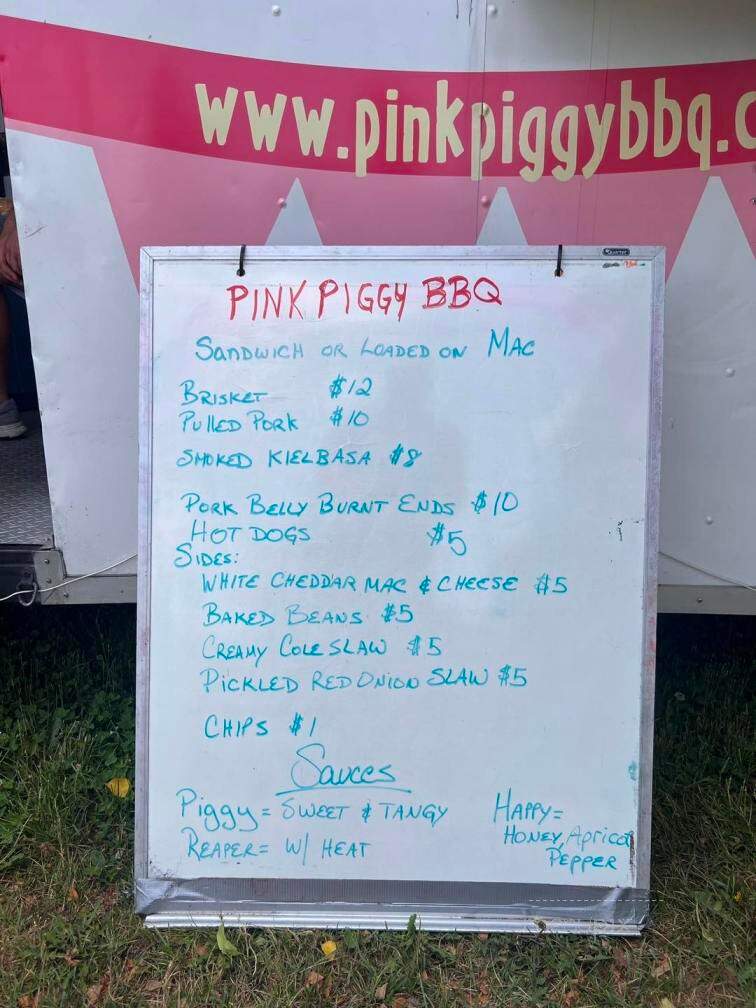 www.pinkpiggybbq.c
PINK PIGGY BBQ
SANDWICH OR LOADED ON MAC
BRISKET $12
PULLED PORK $10
SMOKED KIELBASA $8
PORK BELLY BURNT ENDS $10
HOT DOGS $5
SIDES:
WHITE CHEDDAR MAC & CHEESE $5
BAKED BEANS $5
CREAMY COLE SLAW $5
PICKLED RED ONION SLAW $5
CHIPS $1
Sauces
Piggy = SWEET & TANGY
REAPER = W/ HEAT
HAPPY =
HONEY, Apricot
PEPPER